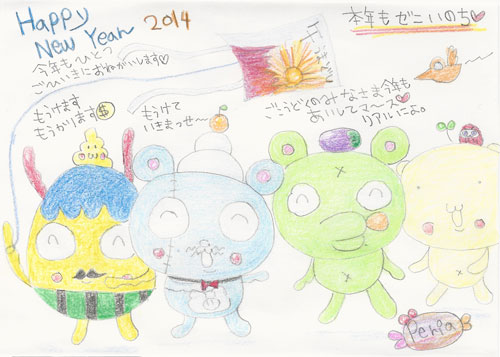 Happy
New Year
2014
本年もゼニいのち♡
今年もひとつ
ごひいきにおねがいします♡
もうけます
もうかります$
もうけて
いきまっせ〜
ごこうどくのみなさま今年も
あいしてマース♡
リアルによ。
Perla